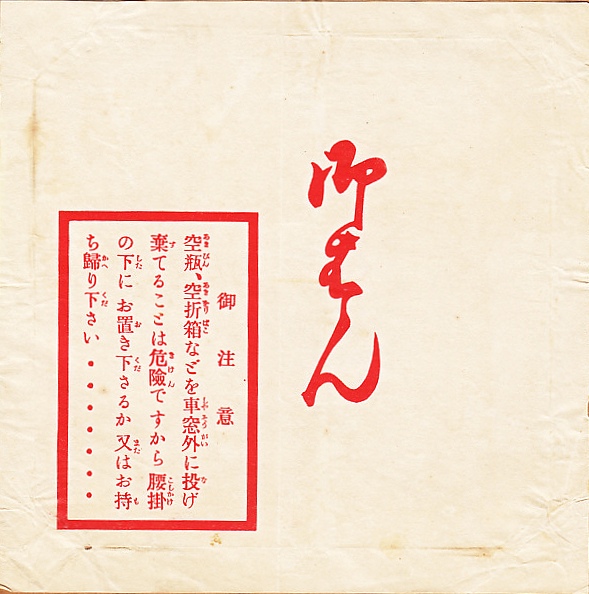 御はん
御注意
空瓶、空折箱などを車窓外に投げ
棄てることは危險ですから腰掛
の下に お置き下さるか 又はお持
ち歸り下さい・・・・・・・